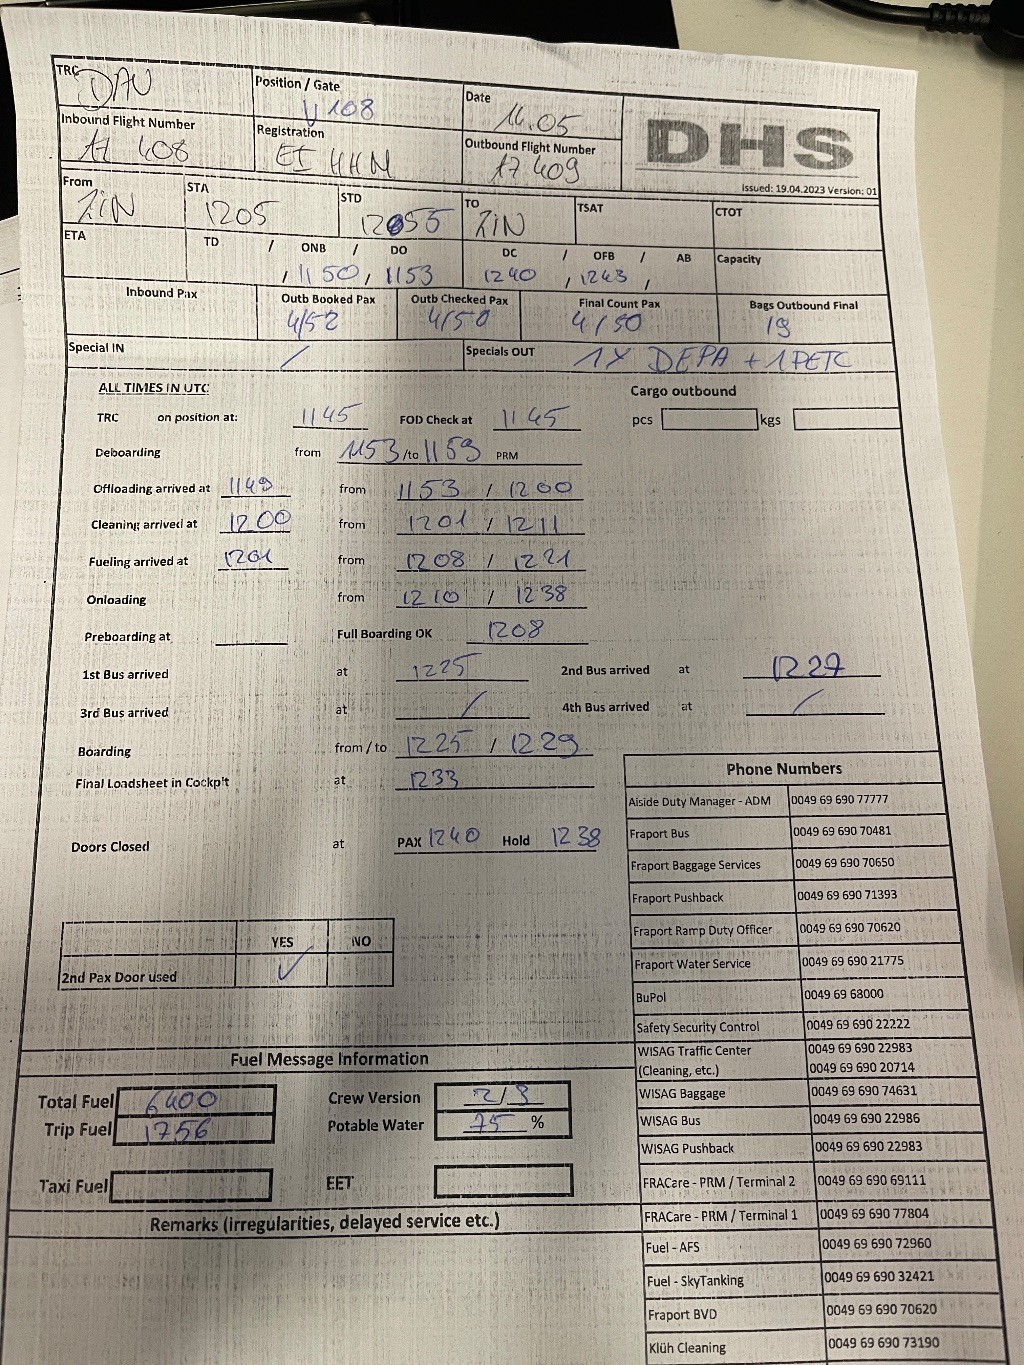 TRC DAV Position / Gate V108 Date 14.05
DHS
Inbound Flight Number AZ 408 Registration EI HHN Outbound Flight Number AZ 409
Issued: 19.04.2023 Version: 01
From LIN STA 1205 STD 1255 TO LIN TSAT CTOT
ETA TD / ONB / DO DC / OFB / AB Capacity
, 1150, 1153 1240 , 1243,
Inbound Pax Outb Booked Pax Outb Checked Pax Final Count Pax Bags Outbound Final
4/52 4/50 4/50 19
Special IN / Specials OUT 1X DEPA + 1 PETC
ALL TIMES IN UTC Cargo outbound
TRC on position at: 1145 FOD Check at 1145 pcs kgs
Deboarding from 1153 /to 1159 PRM
Offloading arrived at 1149 from 1153 / 1200
Cleaning arrived at 1200 from 1201 / 1211
Fueling arrived at 1201 from 1208 / 1221
Onloading from 1210 / 1238
Preboarding at Full Boarding OK 1208
1st Bus arrived at 1225 2nd Bus arrived at 1227
3rd Bus arrived at / 4th Bus arrived at /
Boarding from / to 1225 / 1229
Final Loadsheet in Cockpit at 1233
Doors Closed at PAX 1240 Hold 1238
YES NO
2nd Pax Door used ✓
Fuel Message Information
Total Fuel 6400 Crew Version 2/3
Trip Fuel 1756 Potable Water 75 %
Taxi Fuel EET
Remarks (irregularities, delayed service etc.)
Phone Numbers
Aiside Duty Manager - ADM 0049 69 690 77777
Fraport Bus 0049 69 690 70481
Fraport Baggage Services 0049 69 690 70650
Fraport Pushback 0049 69 690 71393
Fraport Ramp Duty Officer 0049 69 690 70620
Fraport Water Service 0049 69 690 21775
BuPol 0049 69 68000
Safety Security Control 0049 69 690 22222
WISAG Traffic Center 0049 69 690 22983
(Cleaning, etc.) 0049 69 690 20714
WISAG Baggage 0049 69 690 74631
WISAG Bus 0049 69 690 22986
WISAG Pushback 0049 69 690 22983
FRACare - PRM / Terminal 2 0049 69 690 69111
FRACare - PRM / Terminal 1 0049 69 690 77804
Fuel - AFS 0049 69 690 72960
Fuel - SkyTanking 0049 69 690 32421
Fraport BVD 0049 69 690 70620
Klüh Cleaning 0049 69 690 73190